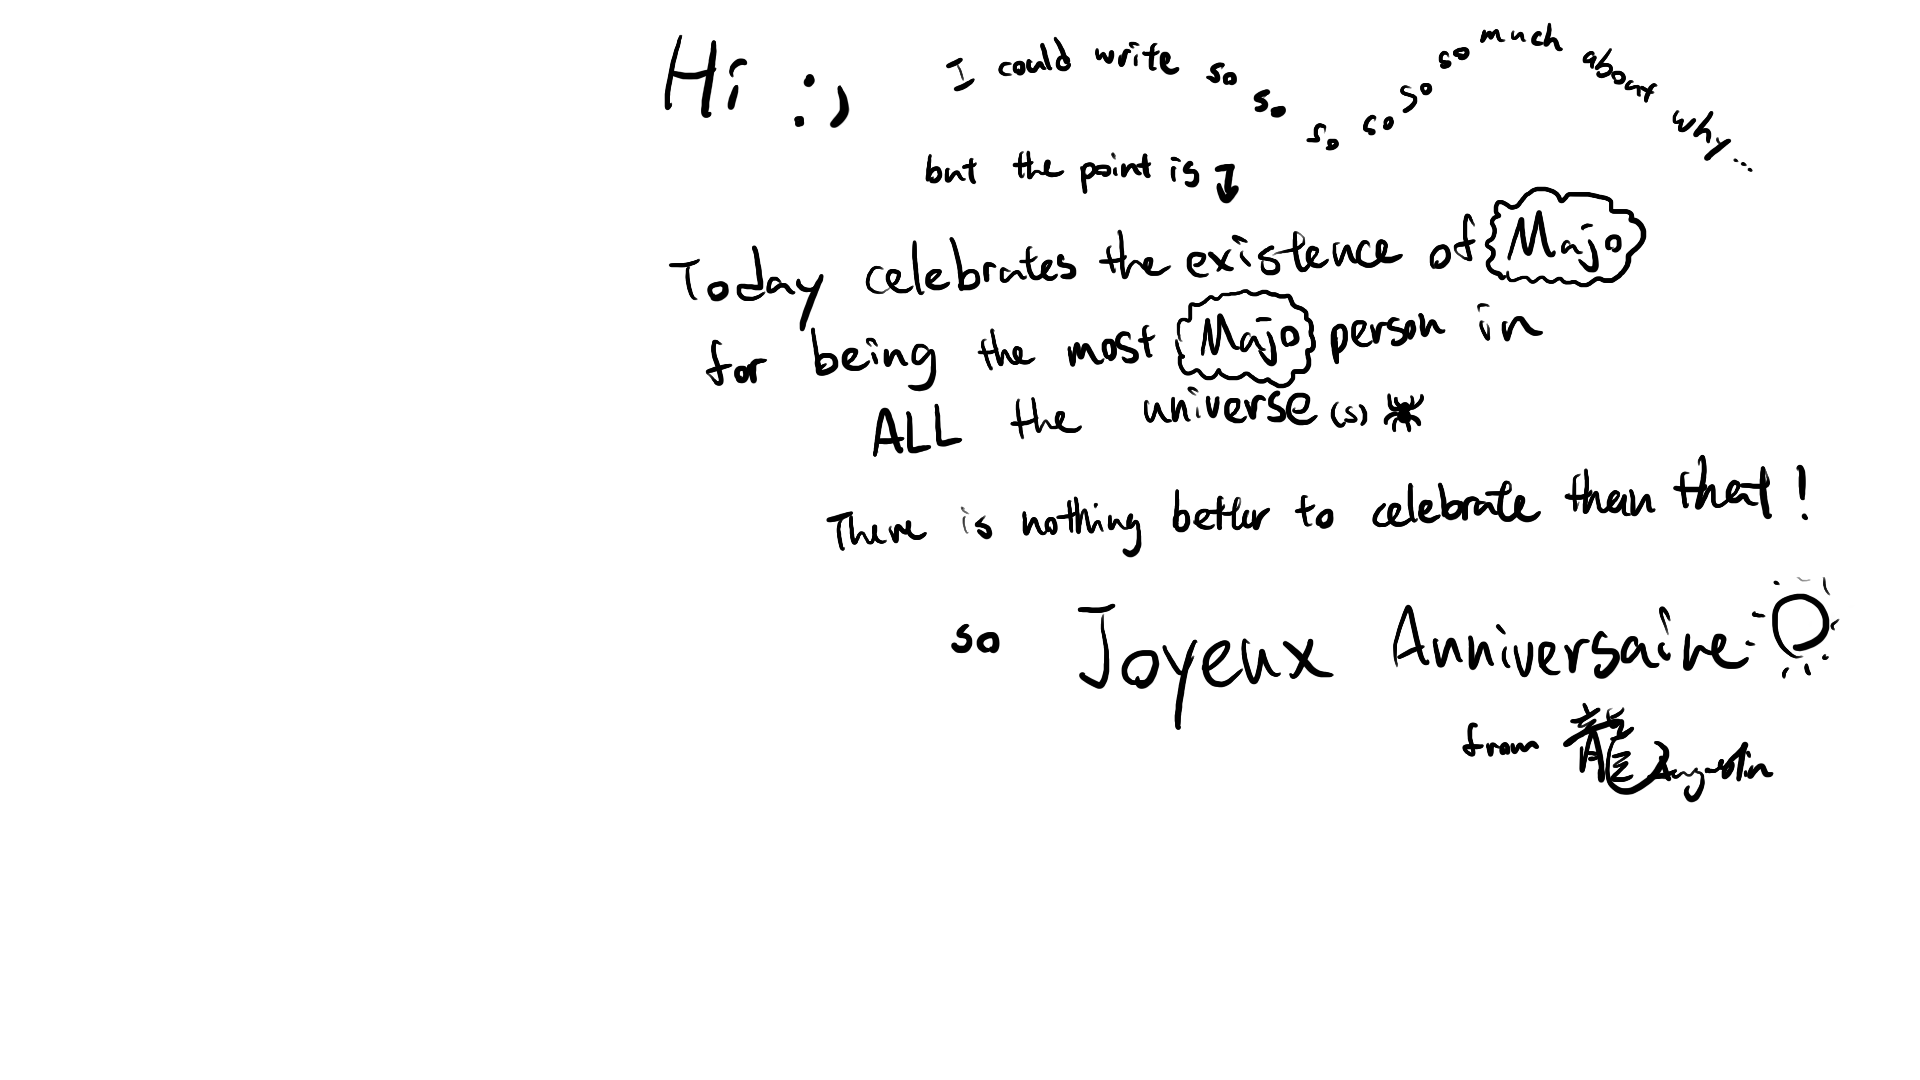 Hi :) I could write so so so so so so much about why...
but the point is ↓
Today celebrates the existence of Majo
for being the most Majo person in
ALL the universe(s)
There is nothing better to celebrate than that!
so Joyeux Anniversaire
from 龍 Augustin